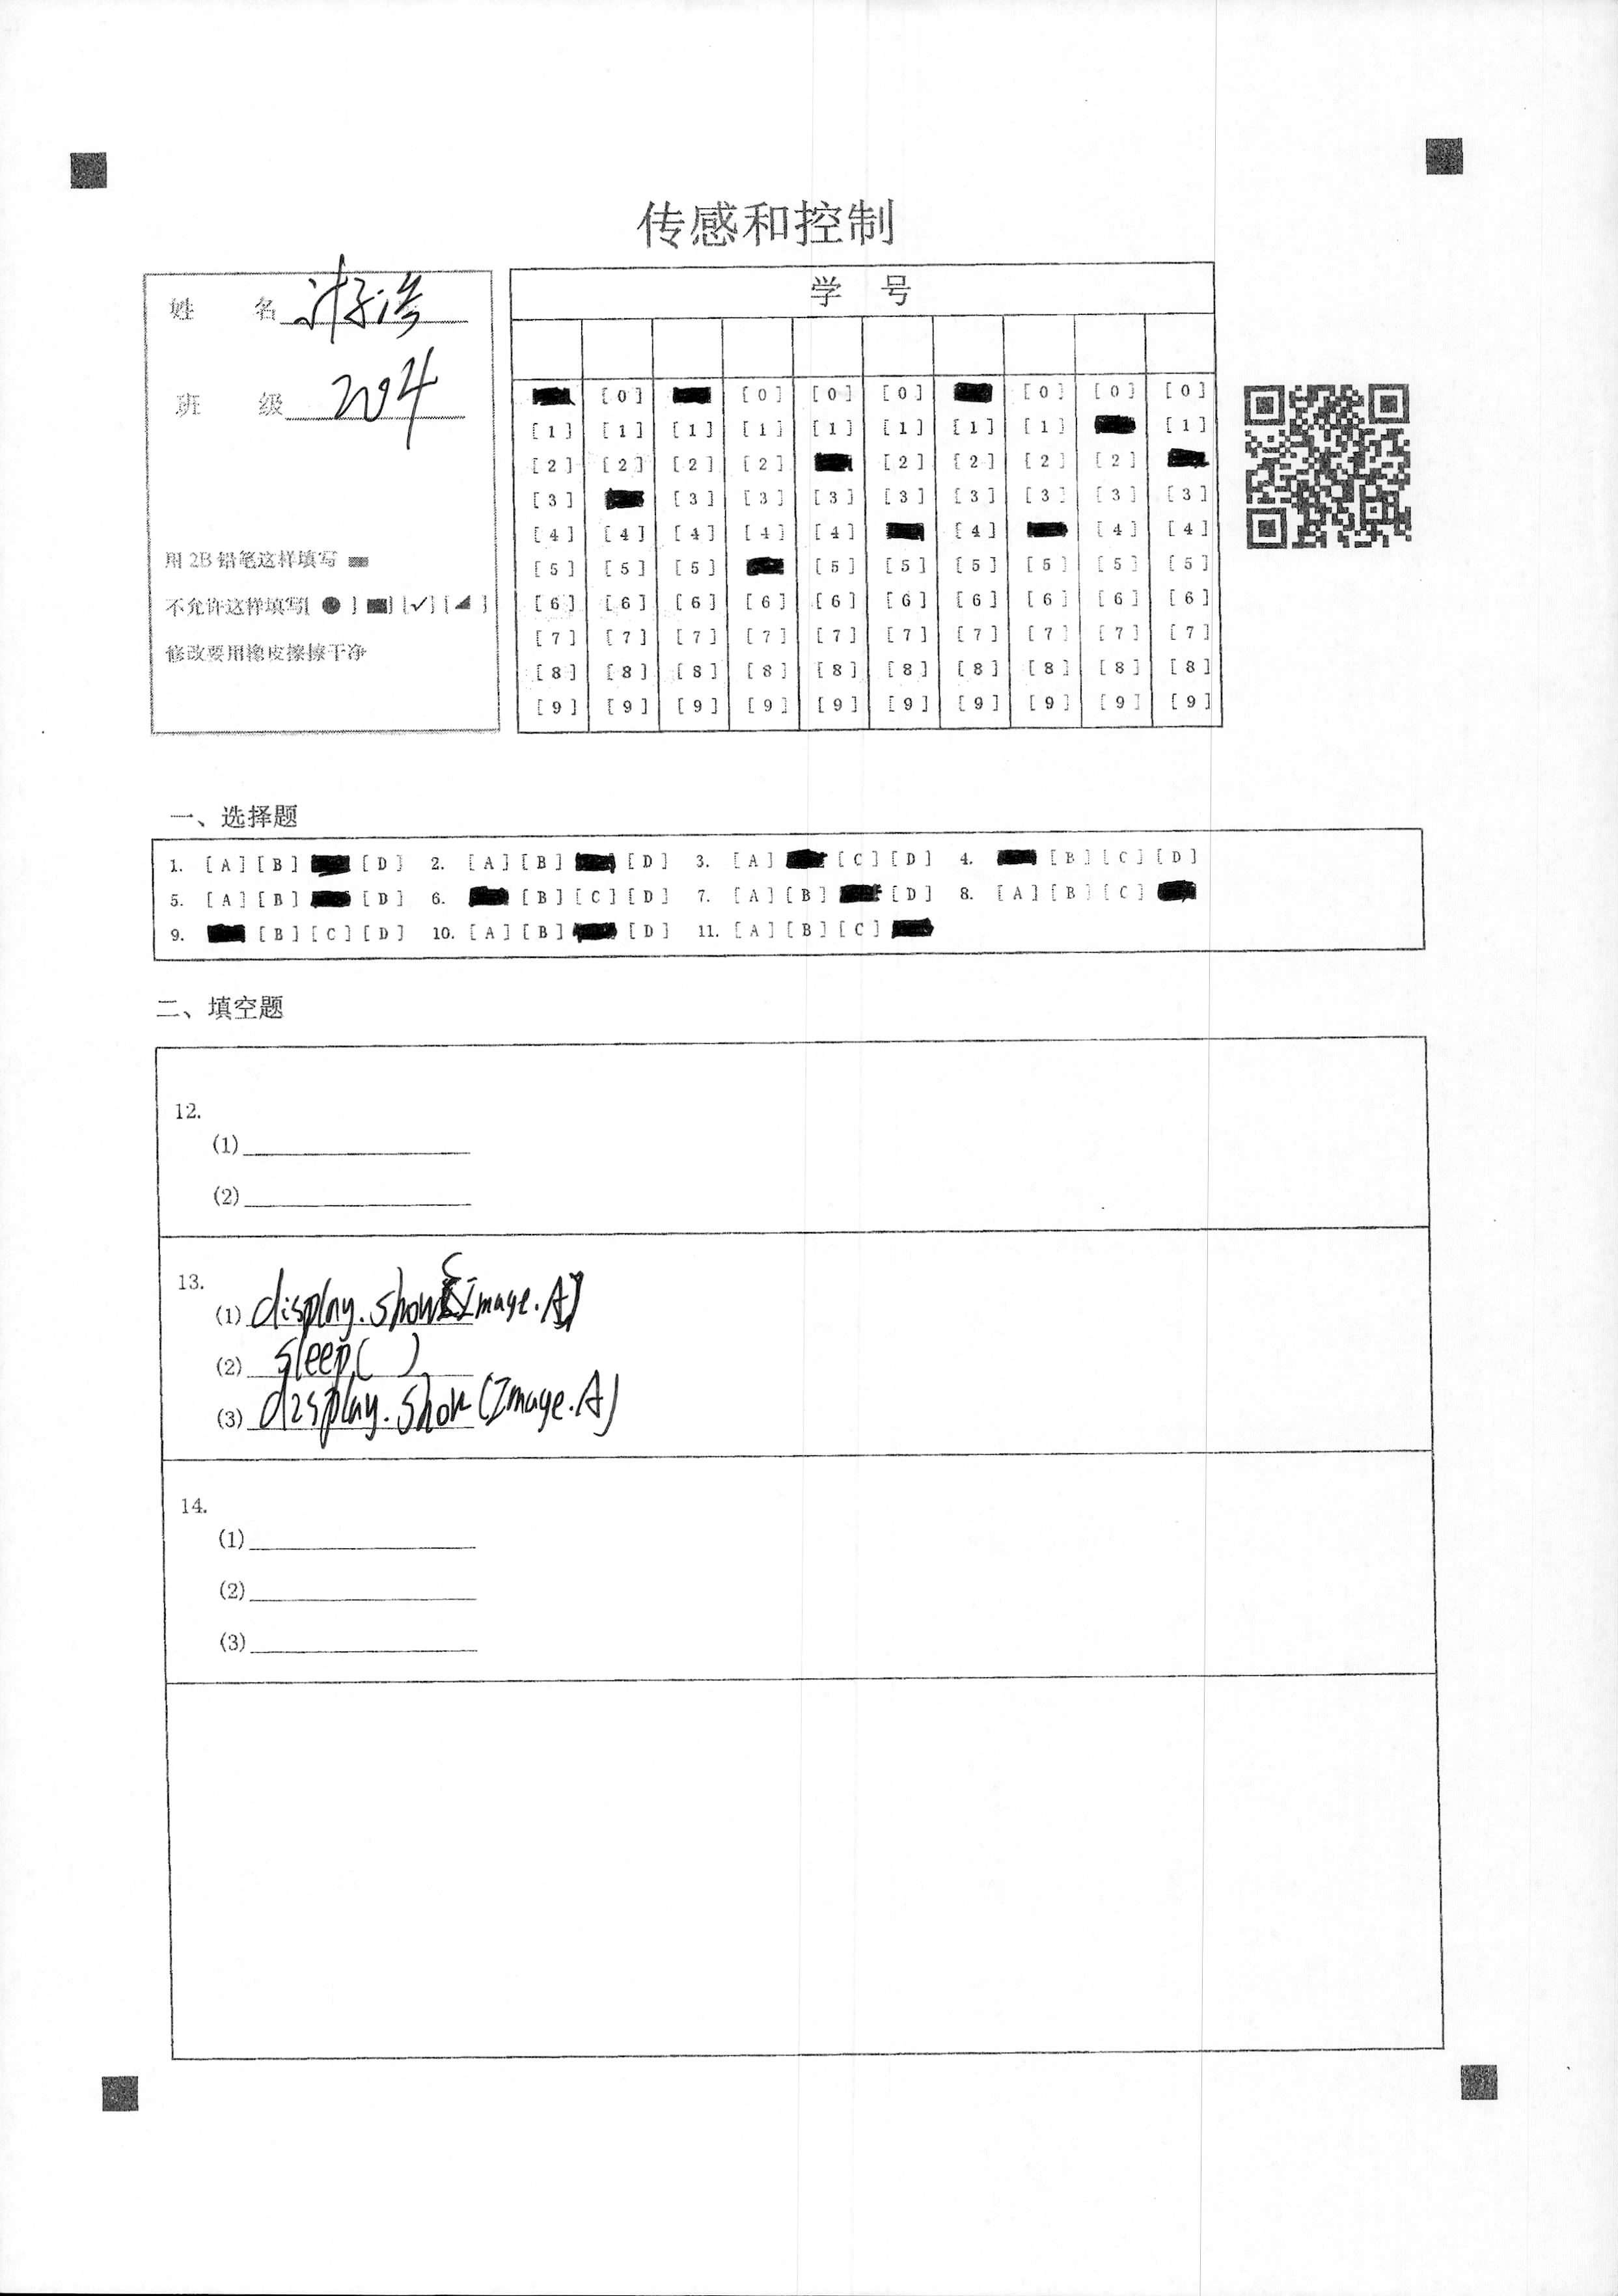 传感和控制
姓 名
班 级 204
用 2B 铅笔这样填写
不允许这样填写[ ● ] ■] [✓] [◢ ]
修改要用橡皮擦擦干净
学 号
[0] [0] [0] [0] [0] [0] [0]
[1] [1] [1] [1] [1] [1] [1] [1] [1]
[2] [2] [2] [2] [2] [2] [2] [2]
[3] [3] [3] [3] [3] [3] [3] [3] [3]
[4] [4] [4] [4] [4] [4] [4] [4]
[5] [5] [5] [5] [5] [5] [5] [5] [5]
[6] [6] [6] [6] [6] [6] [6] [6] [6] [6]
[7] [7] [7] [7] [7] [7] [7] [7] [7] [7]
[8] [8] [8] [8] [8] [8] [8] [8] [8] [8]
[9] [9] [9] [9] [9] [9] [9] [9] [9] [9]
一、选择题
1. [A] [B] [D] 2. [A] [B] [D] 3. [A] [C] [D] 4. [B] [C] [D]
5. [A] [B] [D] 6. [B] [C] [D] 7. [A] [B] [D] 8. [A] [B] [C]
9. [B] [C] [D] 10. [A] [B] [D] 11. [A] [B] [C]
二、填空题
12.
(1)
(2)
13.
(1) display.show(Image.A)
(2) sleep( )
(3) display.show(Image.A)
14.
(1)
(2)
(3)